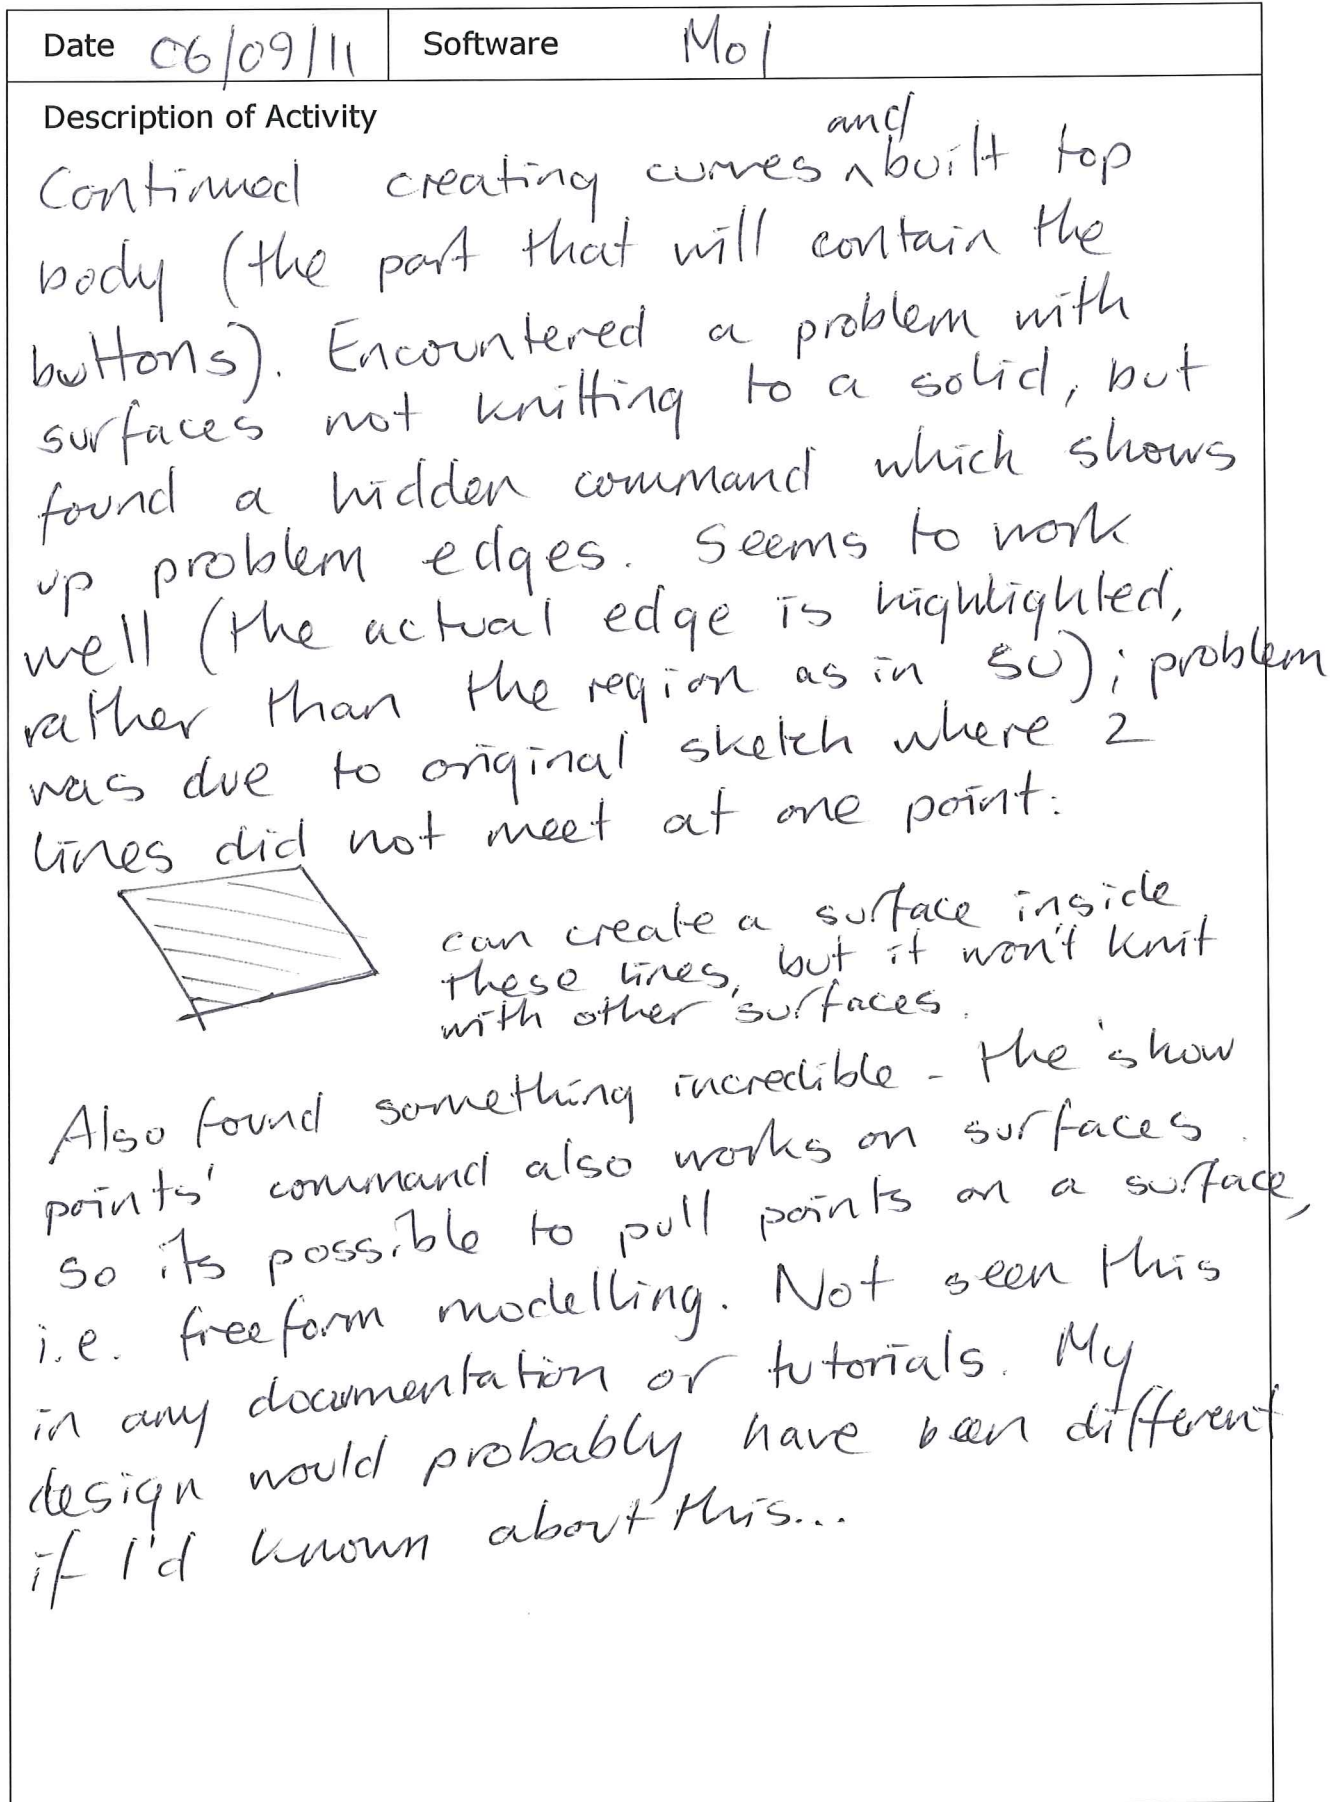 Date 06/09/11 Software MoI
Description of Activity
Continued creating curves ^and built top
body (the part that will contain the
buttons). Encountered a problem with
surfaces not knitting to a solid, but
found a hidden command which shows
up problem edges. Seems to work
well (the actual edge is highlighted,
rather than the region as in SU); problem
was due to original sketch where 2
lines did not meet at one point:
can create a surface inside
these lines, but it won't knit
with other surfaces.
Also found something incredible - the 'show
points' command also works on surfaces.
So its possible to pull points on a surface,
i.e. freeform modelling. Not seen this
in any documentation or tutorials. My
design would probably have been different
if I'd known about this...